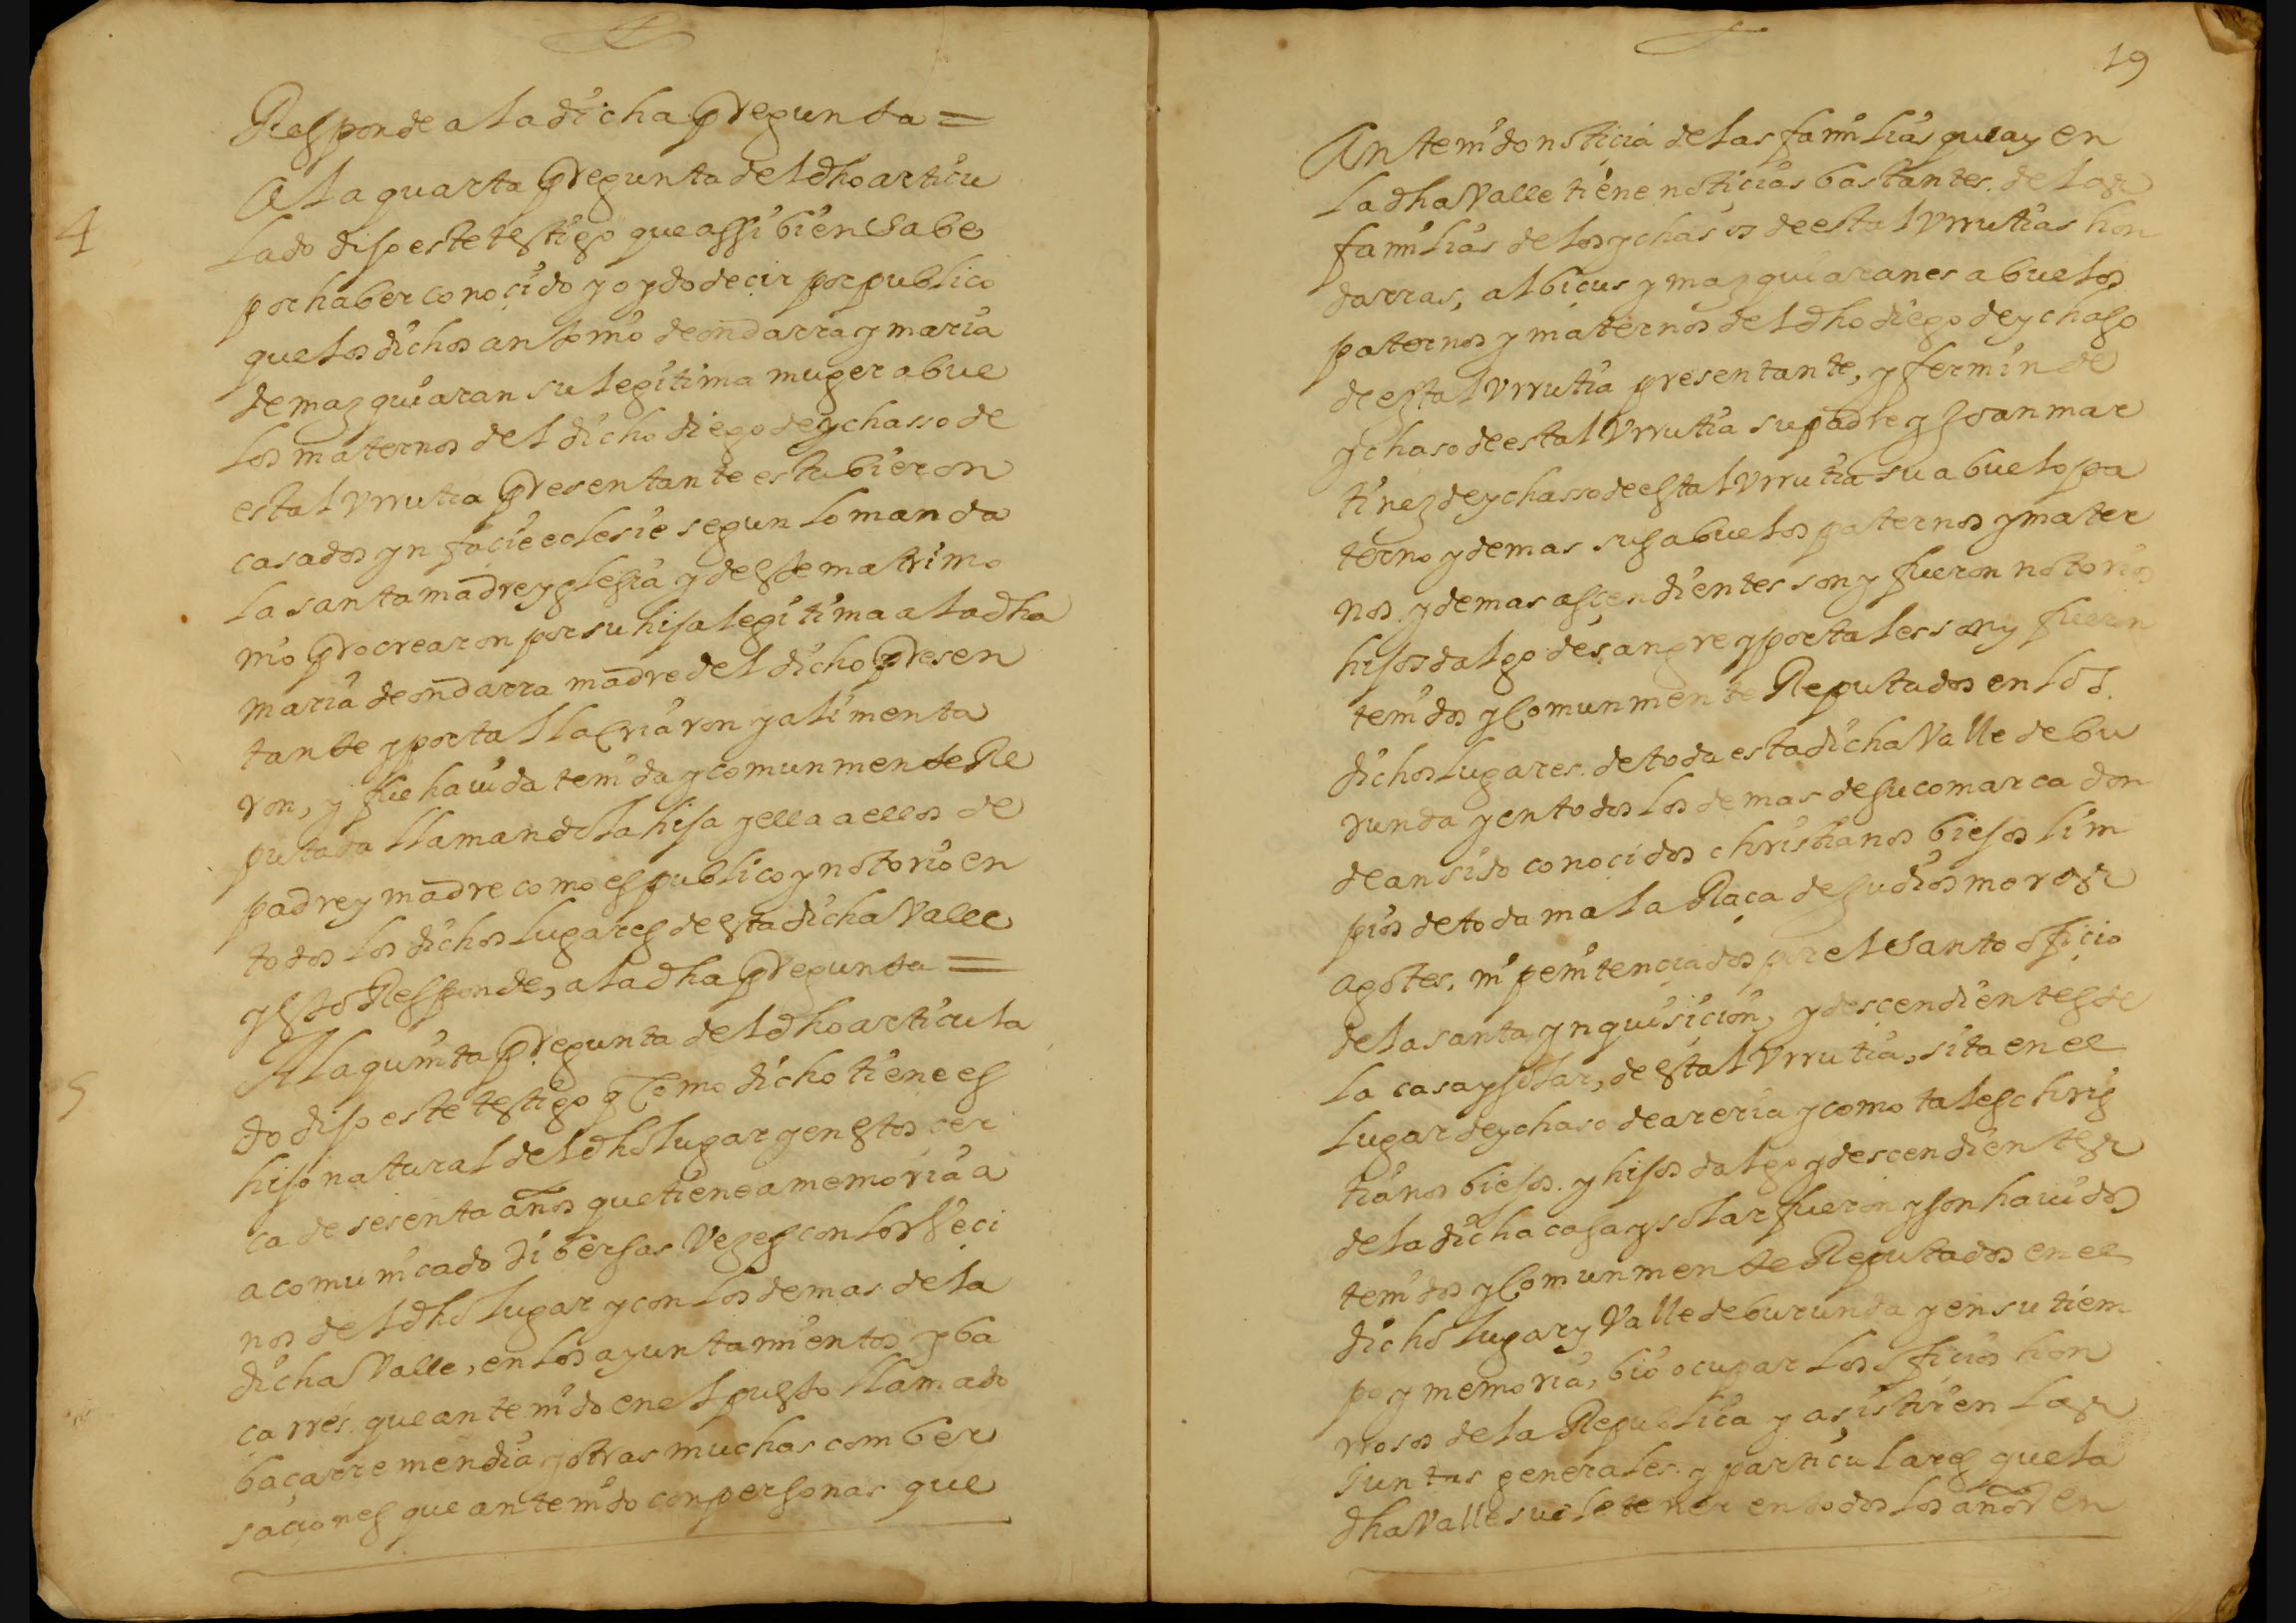 Responde a la dicha pregunta =
4
A la quarta pregunta del dho articu
lado dijo este testigo que assi bien sabe
por haber conoçido y oydo deçir por publico
que los dichos antonio de ondarra y maria
de mazquiaran su legitima muger abue
los maternos del dicho diego de ychasso de
estal Vrrutia presentante estubieron
casados yn façie eclesie segun lo manda
la santa madre yglesia y deste matrimo
nio procrearon por su hija legitima a la dha
maria de ondarra madre del dicho presen
tante y por tal la criaron y alimenta
ron, y fue hauida tenida y comunmente Re
putada llamandola hija y ella a ellos de
padre y madre como es publico y notorio en
todos los dichos lugares desta dicha Valle
y esto Responde, a la dha pregunta =
5
A la quinta pregunta del dho articula
do dijo este testigo q Como dicho tiene es
hijo natural del dho lugar y en estos cer
ca de sesenta años que tiene a memoria a
a comunicado dibersas Vezes con los Veçi
nos del dho lugar y con los demas de la
dicha Valle, en los ayuntamientos y ba
çarres que an tenido en el puesto llamado
baçarremendia y otras muchas comber
saçiones que an tenido con personas que
19
An tenido notiçia de las familias que ay en
la dha Valle tiene notiçias bastantes de las
familias de los ychasos de estal Vrrutias hon
darras, albiçus y mazquiaranes abuelos
paternos y maternos del dho diego de ychaso
de estal Vrrutia presentante, y fermin de
ychaso de estal Vrrutia su padre y Joan mar
tinez de ychasso de estal Vrrutia su abuelo pa
terno y demas sus abuelos paternos y mater
nos y demas asçendientes son y fueron notorios
hijos dalgo de sangre y por tales son y fueron
tenidos y Comunmente Reputados en los
dichos lugares de toda esta dicha Valle de bu
runda y en todos los demas de su comarca don
de an sido conoçidos christianos biejos lim
pios de toda mala Raça de judios moros
agotes, ni penitençiados por el santo ofiçio
de la santa ynquisiçion, y desçendientes de
la casa y solar, de estal Vrrutia, sita en el
lugar de ychaso de areria y como tales chris
tianos biejos y hijos dalgo y desçendientes
de la dicha casa y solar fueron y son hauidos
tenidos y Comunmente Reputados en el
dicho lugar y Valle de burunda y en su tiem
po y memoria, bio ocupar los ofiçios hon
rrosos de la Republica y asistir en las
Juntas generales y particulares que la
dha Valle suele tener en todos los años en